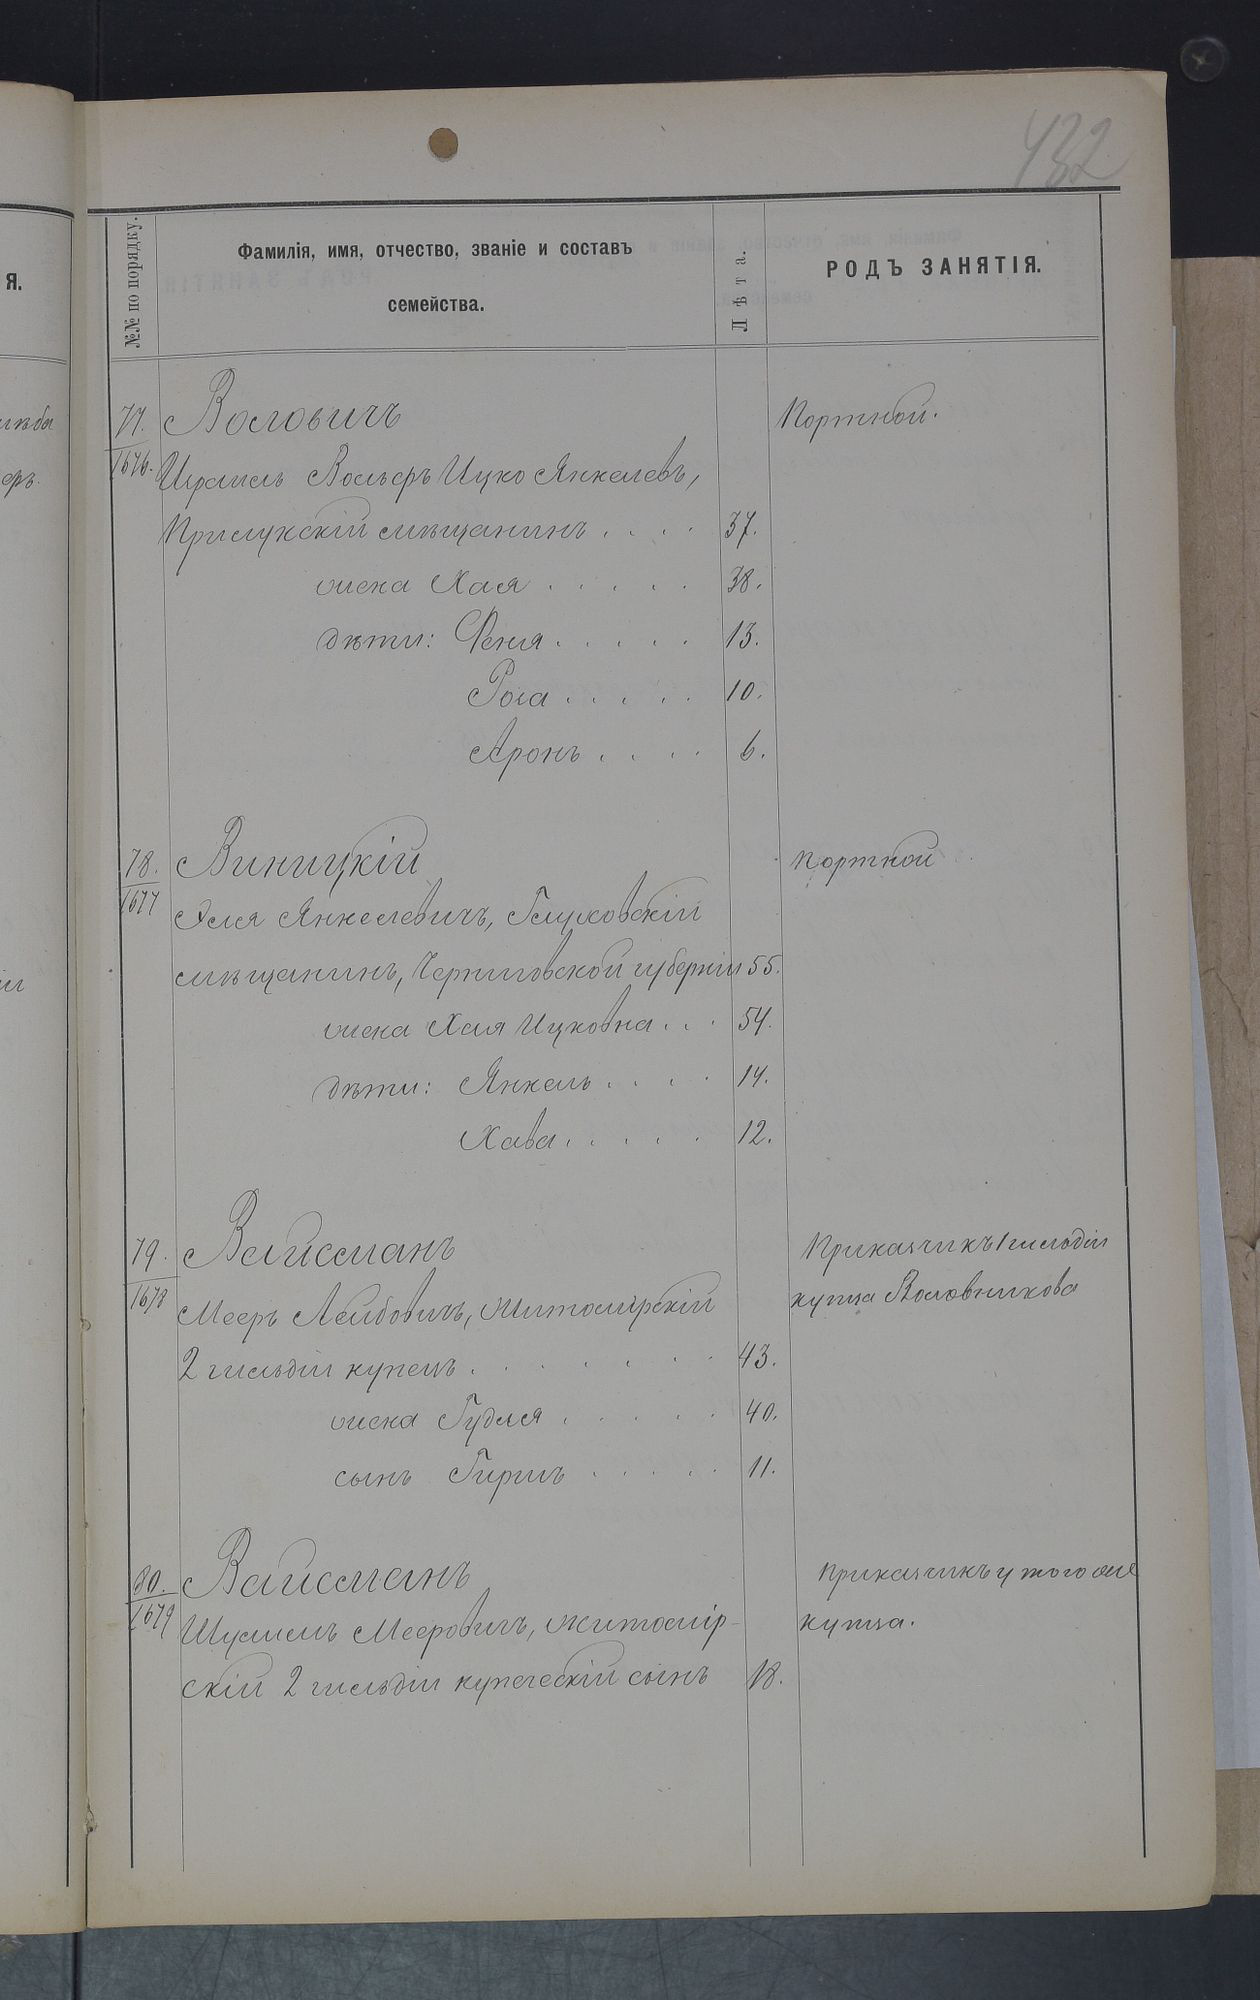 432
№№ по порядку.
Фамилія, имя, отчество, званіе и составъ
семейства.
Лѣта.
РОДЪ ЗАНЯТІЯ.
Я.
77.
1676.
Воловичъ
Портной.
Израиль Вольфъ Ицко Янкелевъ,
Прилукскій мѣщанинъ . . . . 37.
жена Хая . . . . . 38.
дѣти: Феня . . . . . 13.
Рога . . . . . 10.
Аронъ . . . . 6.
78.
1677
Виницкій
портной
Эля Янкелевичъ, Глуховскій
мѣщанинъ, Черниговской губерніи 55.
жена Хая Ицковна . . . 54.
дѣти: Янкель . . . . 14.
Хава . . . . . 12.
79.
1678
Вайсманъ
Приказчикъ 1 гильдіи
купца Воловникова
Мееръ Лейбовичъ, Житомірскій
2 гильдіи купецъ . . . . . . . 43.
жена Гудля . . . . . 40.
сынъ Гиршъ . . . . . 11.
80.
1679
Вайсманъ
приказчикъ у того же
купца.
Шулимъ Мееровичъ, житомір-
скій 2 гильдіи купеческій сынъ 18.